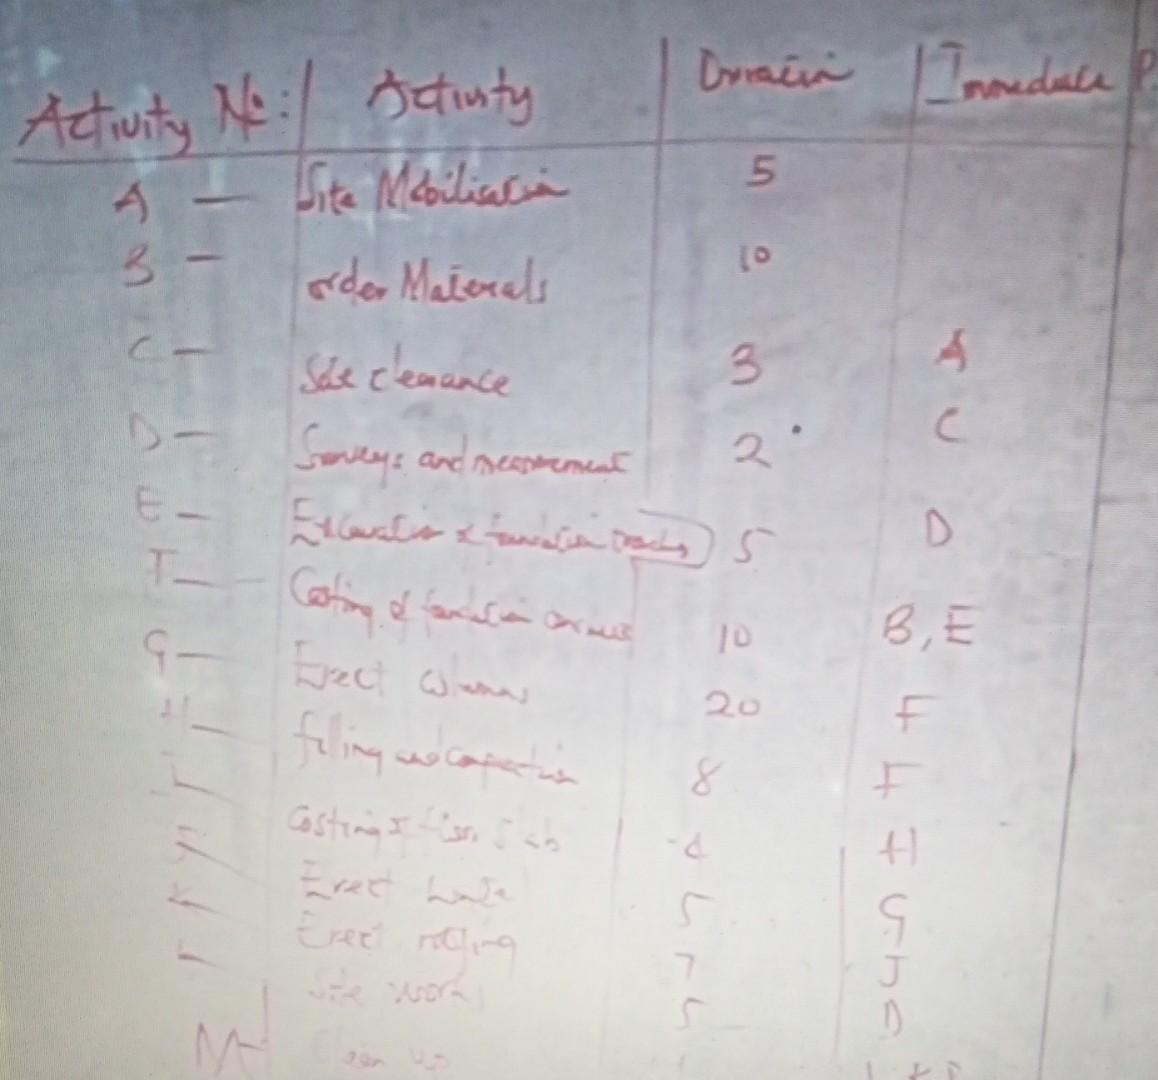 Activity No: Activity Duration Immediate P.
A - Site Mobilisation 5
B - order Materials 10
C - Site clearance 3 A
D - Surveys and measurement 2 C
E - Excavation of foundation 5 D
F - Casting of foundation 10 B, E
G - Erect columns 20 F
H - filling and compaction 8 F
I - Casting of 4 H
J - Erect 5 G
K - Erect roofing 7 J
L - Site work 5 D
M - Clean up